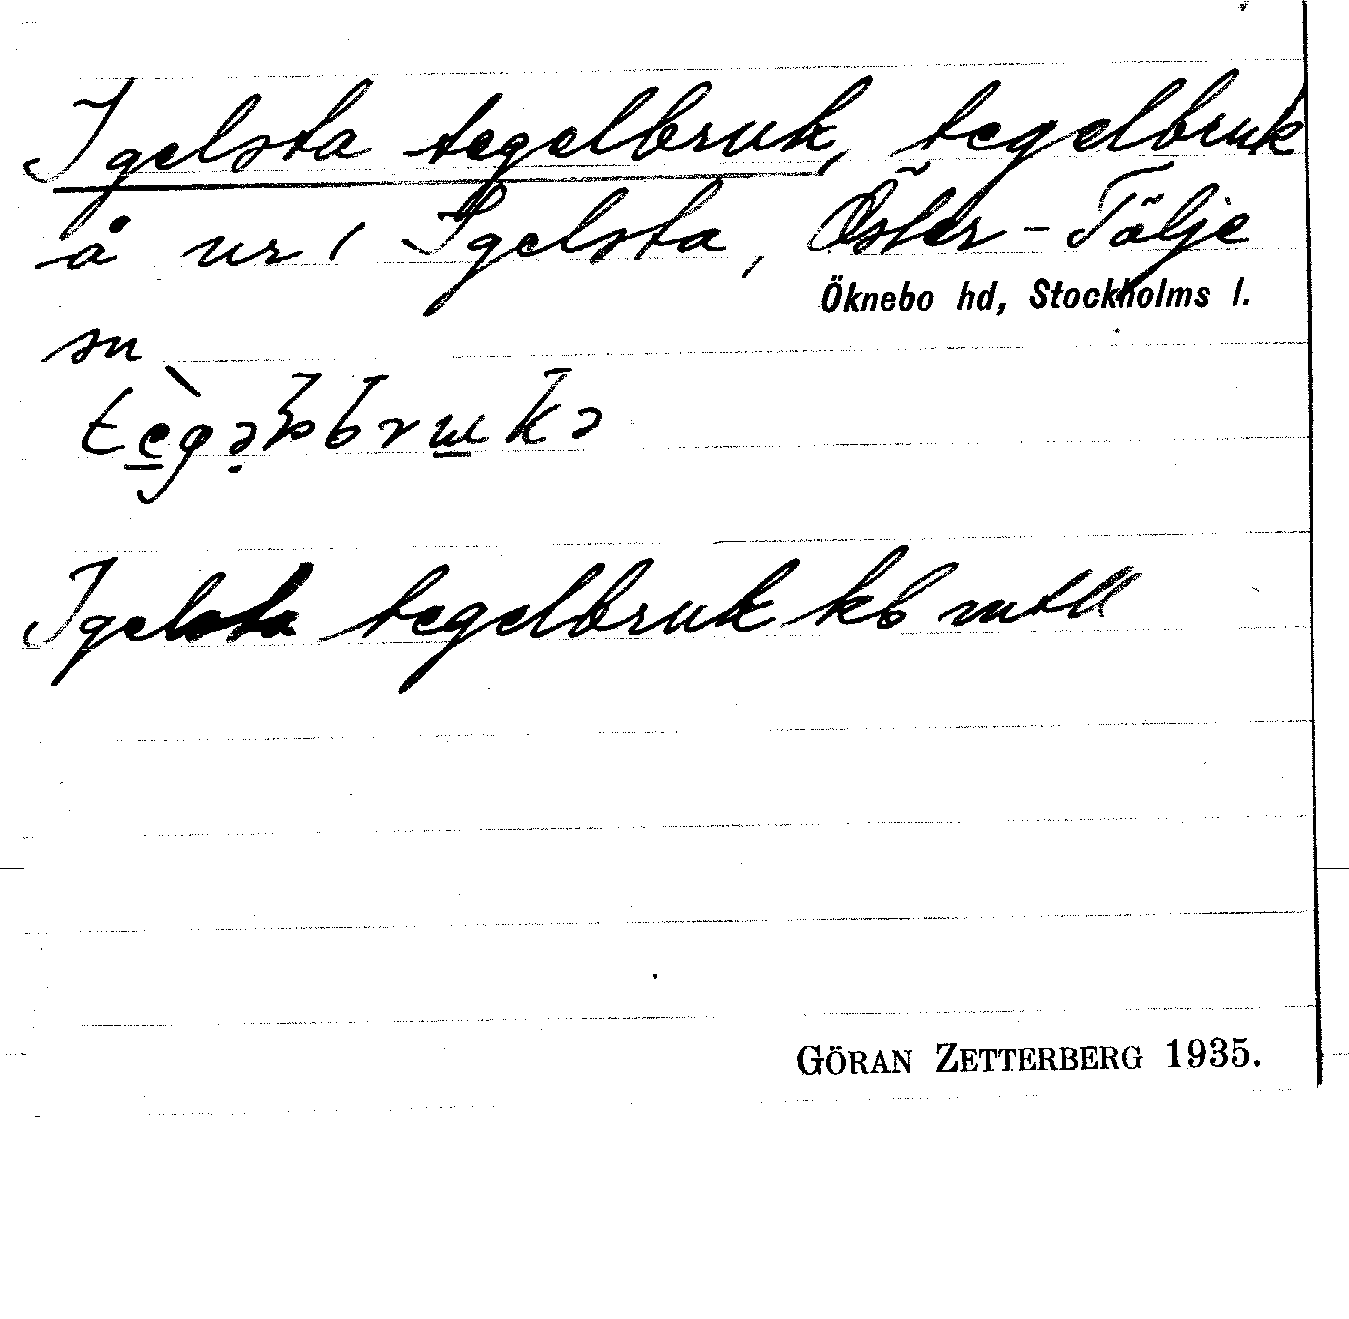 Igelsta tegelbruk, tegelbruk
å ur 1 Igelsta, Öster-Tälje
Öknebo hd, Stockholms l.
sn
Igelsta tegelbruk kb
GÖRAN ZETTERBERG 1935.